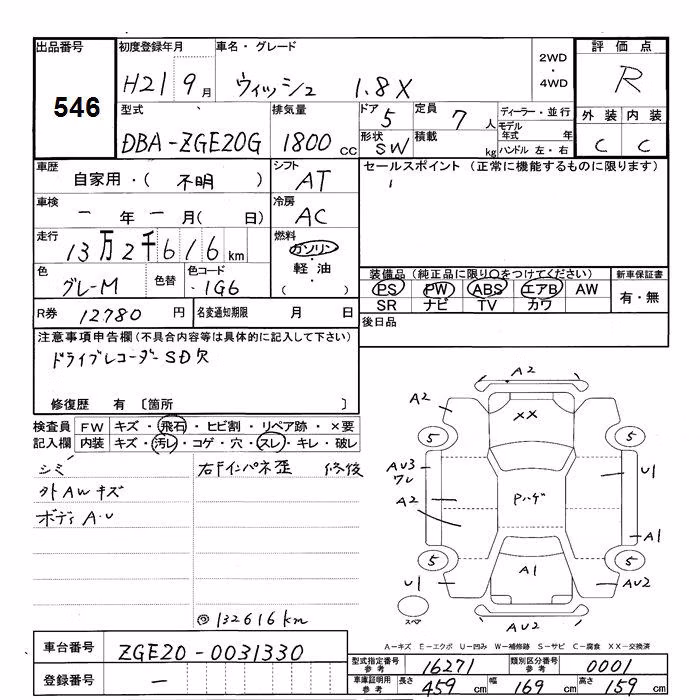 出品番号
546
初度登録年月
H21 9月
車名・グレード
ウィッシュ 1.8X
2WD
・
4WD
評価点
R
型式
DBA-ZGE20G
排気量
1800 CC
ドア 5
定員 7 人
形状 SW
積載 kg
ディーラー・並行
モデル年式 年
ハンドル 左・右
外装 内装
C C
車歴
自家用・( 不明 )
シフト
AT
セールスポイント (正常に機能するものに限ります)
車検
一 年 一 月( 日)
冷房
AC
走行
13万2千616km
燃料
ガソリン
・
軽油
色
グレーM
色替
色コード
1G6
装備品 (純正品に限り○をつけてください)
PS PW ABS エアB AW
SR ナビ TV カワ
新車保証書
有・無
R券 12780円
名変通知期限 月 日
後日品
注意事項申告欄 (不具合内容等は具体的に記入して下さい)
ドライブレコーダーSD欠
修復歴 有 〔箇所 〕
検査員記入欄
FW キズ・飛石・ヒビ割・リペア跡・×要
内装 キズ・汚レ・コゲ・穴・スレ・キレ・破レ
シミ
外AWキズ
ボディA・U
右Fインパネ歪 修復
◎132616km
A2
A2
XX
5
5
AU3
ワレ
A2
Pハゲ
U1
A1
5
5
A1
U1
AU2
スペア
AU2
A-キズ E-エクボ U-凹み W-補修跡 S-サビ C-腐食 XX-交換済
車台番号
ZGE20-0031330
登録番号
ー
型式指定番号 参考 16271
類別区分番号 参考 0001
車庫証明用 参考
長さ 459cm
幅 169cm
高さ 159cm